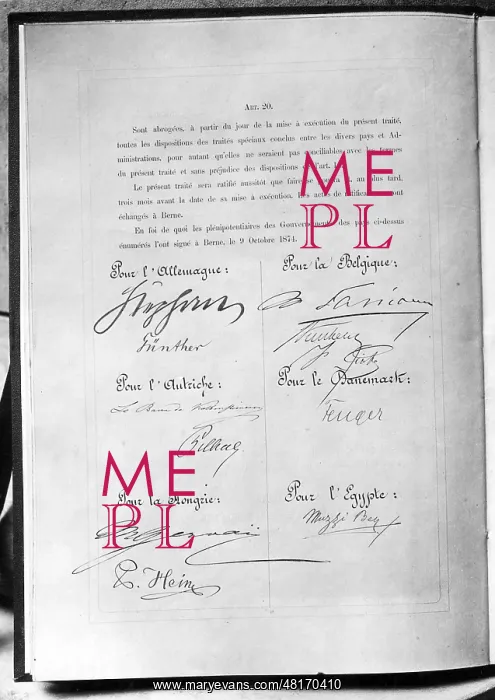 ART. 20.
Sont abrogées, à partir du jour de la mise à exécution du présent traité,
toutes les dispositions des traités spéciaux conclus entre les divers pays et Ad-
ministrations, pour autant qu'elles ne seraient pas conciliables avec les termes
du présent traité et sans préjudice des dispositions de l'art.
Le présent traité sera ratifié aussitôt que faire se pourra et, au plus tard,
trois mois avant la date de sa mise à exécution. Les actes de ratification ont
échangés à Berne.
En foi de quoi les plénipotentiaires des Gouvernements des pays ci-dessus
énumérés l'ont signé à Berne, le 9 Octobre 1874.
ME
PL
Pour l'Allemagne:
Stephan
Günther
Pour la Belgique:
Fassiaux
Vinchent
J. Gife
Pour l'Autriche:
Le Baron de
Pilhal
Pour le Danemark:
Fenger
ME
PL
Pour la Hongrie:
Gervay
P. Heim
Pour l'Egypte:
Muzzi Bey
www.maryevans.com/48170410